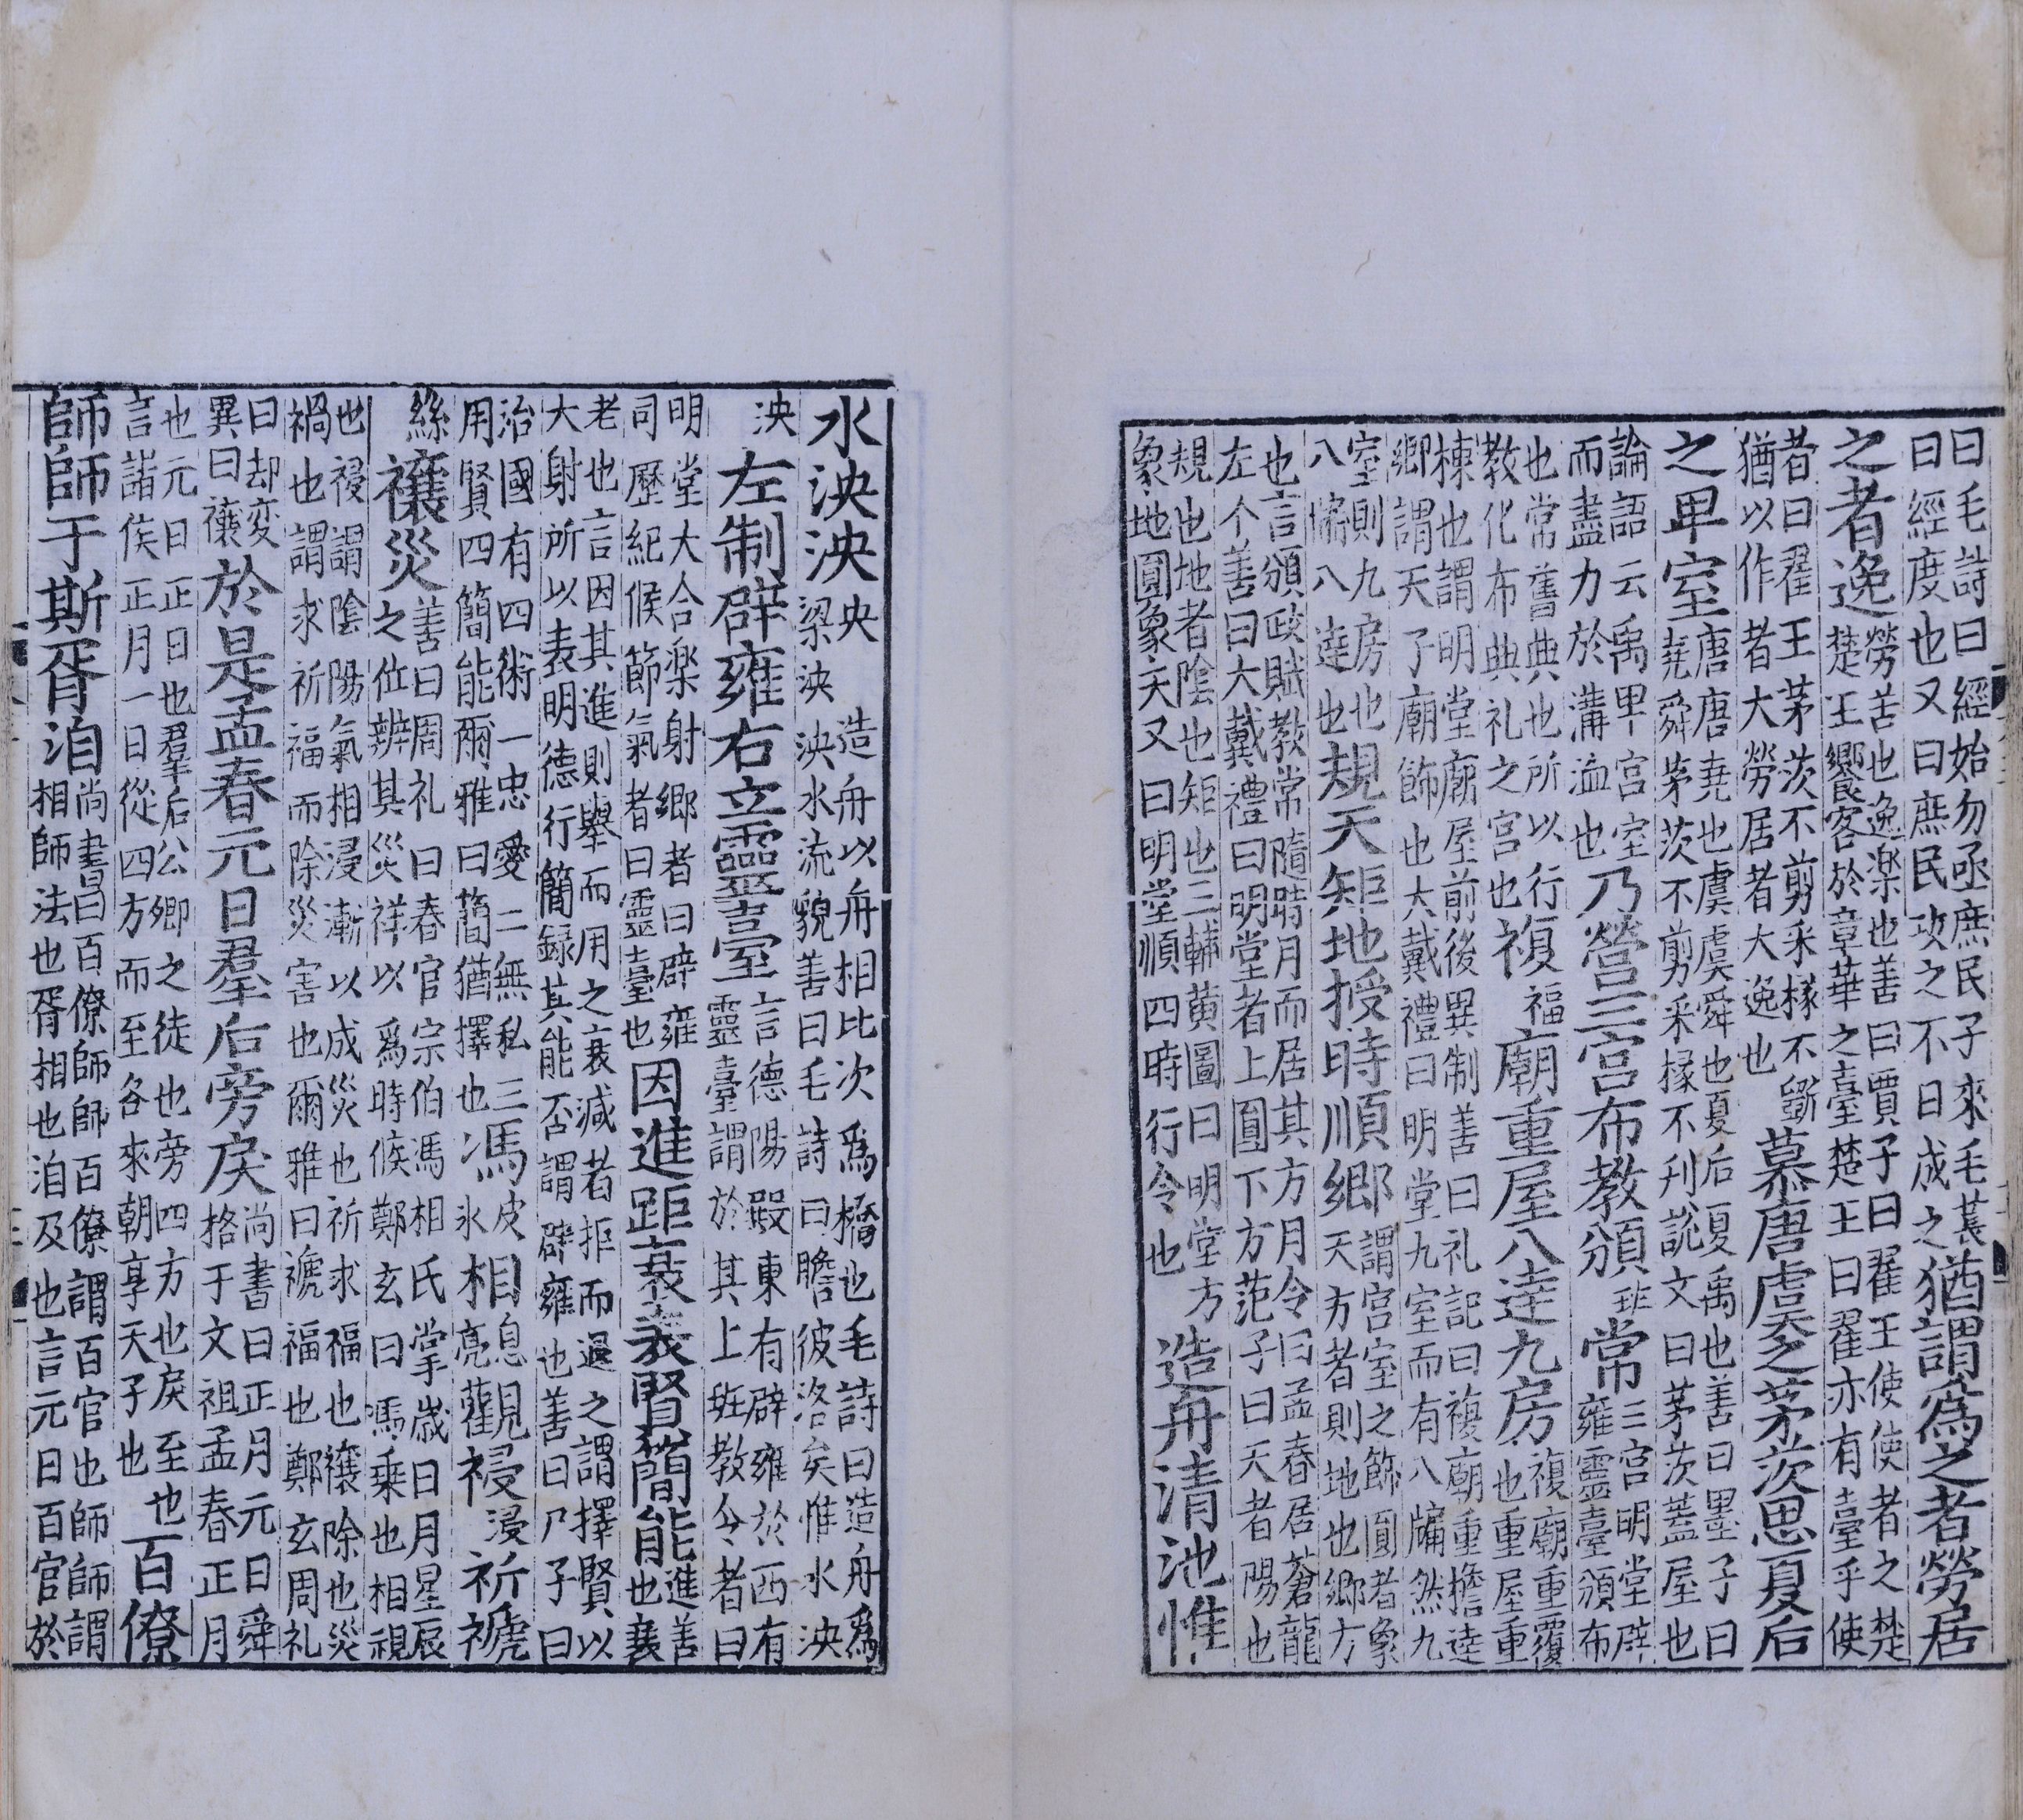 曰毛詩曰經始勿亟庶民子來毛萇曰經度也又曰庶民攻之不日成之猶謂為之者勞居
之者逸勞苦也逸楽也善曰賈子曰翟王使使者之楚楚王饗客於章華之臺楚王曰翟亦有臺乎使
者曰翟王茅茨不剪采椽不斵猶以作者大勞居者大逸也慕唐虞之茅茨思夏后
之卑室唐唐堯也虞虞舜也夏后夏禹也善曰墨子曰堯舜茅茨不剪采椽不刋說文曰茅茨蓋屋也
論語云禹卑宮室而盡力於溝洫也乃營三宮布教頒班常三宮明堂辟雍靈臺頒布
也常舊典也所以行教化布典礼之宮也複福廟重屋八逹九房複廟重覆也重屋重
棟也謂明堂廟屋前後異制善曰礼記曰複廟重擔逹卿謂天子廟飾也大戴禮曰明堂九室而有八牖然九
室則九房也八牖八逹也規天矩地授時順鄉謂宮室之飾圓者象天方者則地也鄉方
也言頒政賦教常隨時月而居其方月令曰孟春居蒼龍左个善曰大戴禮曰明堂者上圓下方范子曰天者陽也
規也地者陰也矩也三輔黄圖曰明堂方象地圓象天又曰明堂順四時行令也造舟清池惟
水泱泱央造舟以舟相比次為橋也毛詩曰造舟為梁泱泱水流貌善曰毛詩曰瞻彼洛矣惟水泱
泱左制辟雍右立靈臺言德陽殿東有辟雍於西有靈臺謂於其上班教令者曰
明堂大合楽射鄉者曰辟雍司歷紀候節氣者曰靈臺也因進距衰義賢簡能進善也襄
老也言因其進則舉而用之衰減者拒而退之謂擇賢以大射所以表明德行簡録其能否謂辟雍也善曰尸子曰
治國有四術一忠愛二無私三用賢四簡能爾雅曰簡猶擇也馮皮氷相息亮觀祲浸祈禠
絲禳災善曰周礼曰春官宗伯馮相氏掌歳日月星辰之位辨其災祥以為時候鄭玄曰馮乗也相視
也祲謂陰陽氣相浸漸以成災也祈求福也禳除也災禍也謂求祈福而除災害也爾雅曰禠福也鄭玄周礼
曰却変異曰禳於是孟春元日羣后旁戾尚書曰正月元日舜格于文祖孟春正月
也元日正日也羣后公卿之徒也旁四方也戾至也言諸侯正月一日從四方而至各來朝享天子也百僚
師師于斯胥洎尚書曰百僚師師百僚謂百官也師師謂相師法也胥相也洎及也言元日百官於